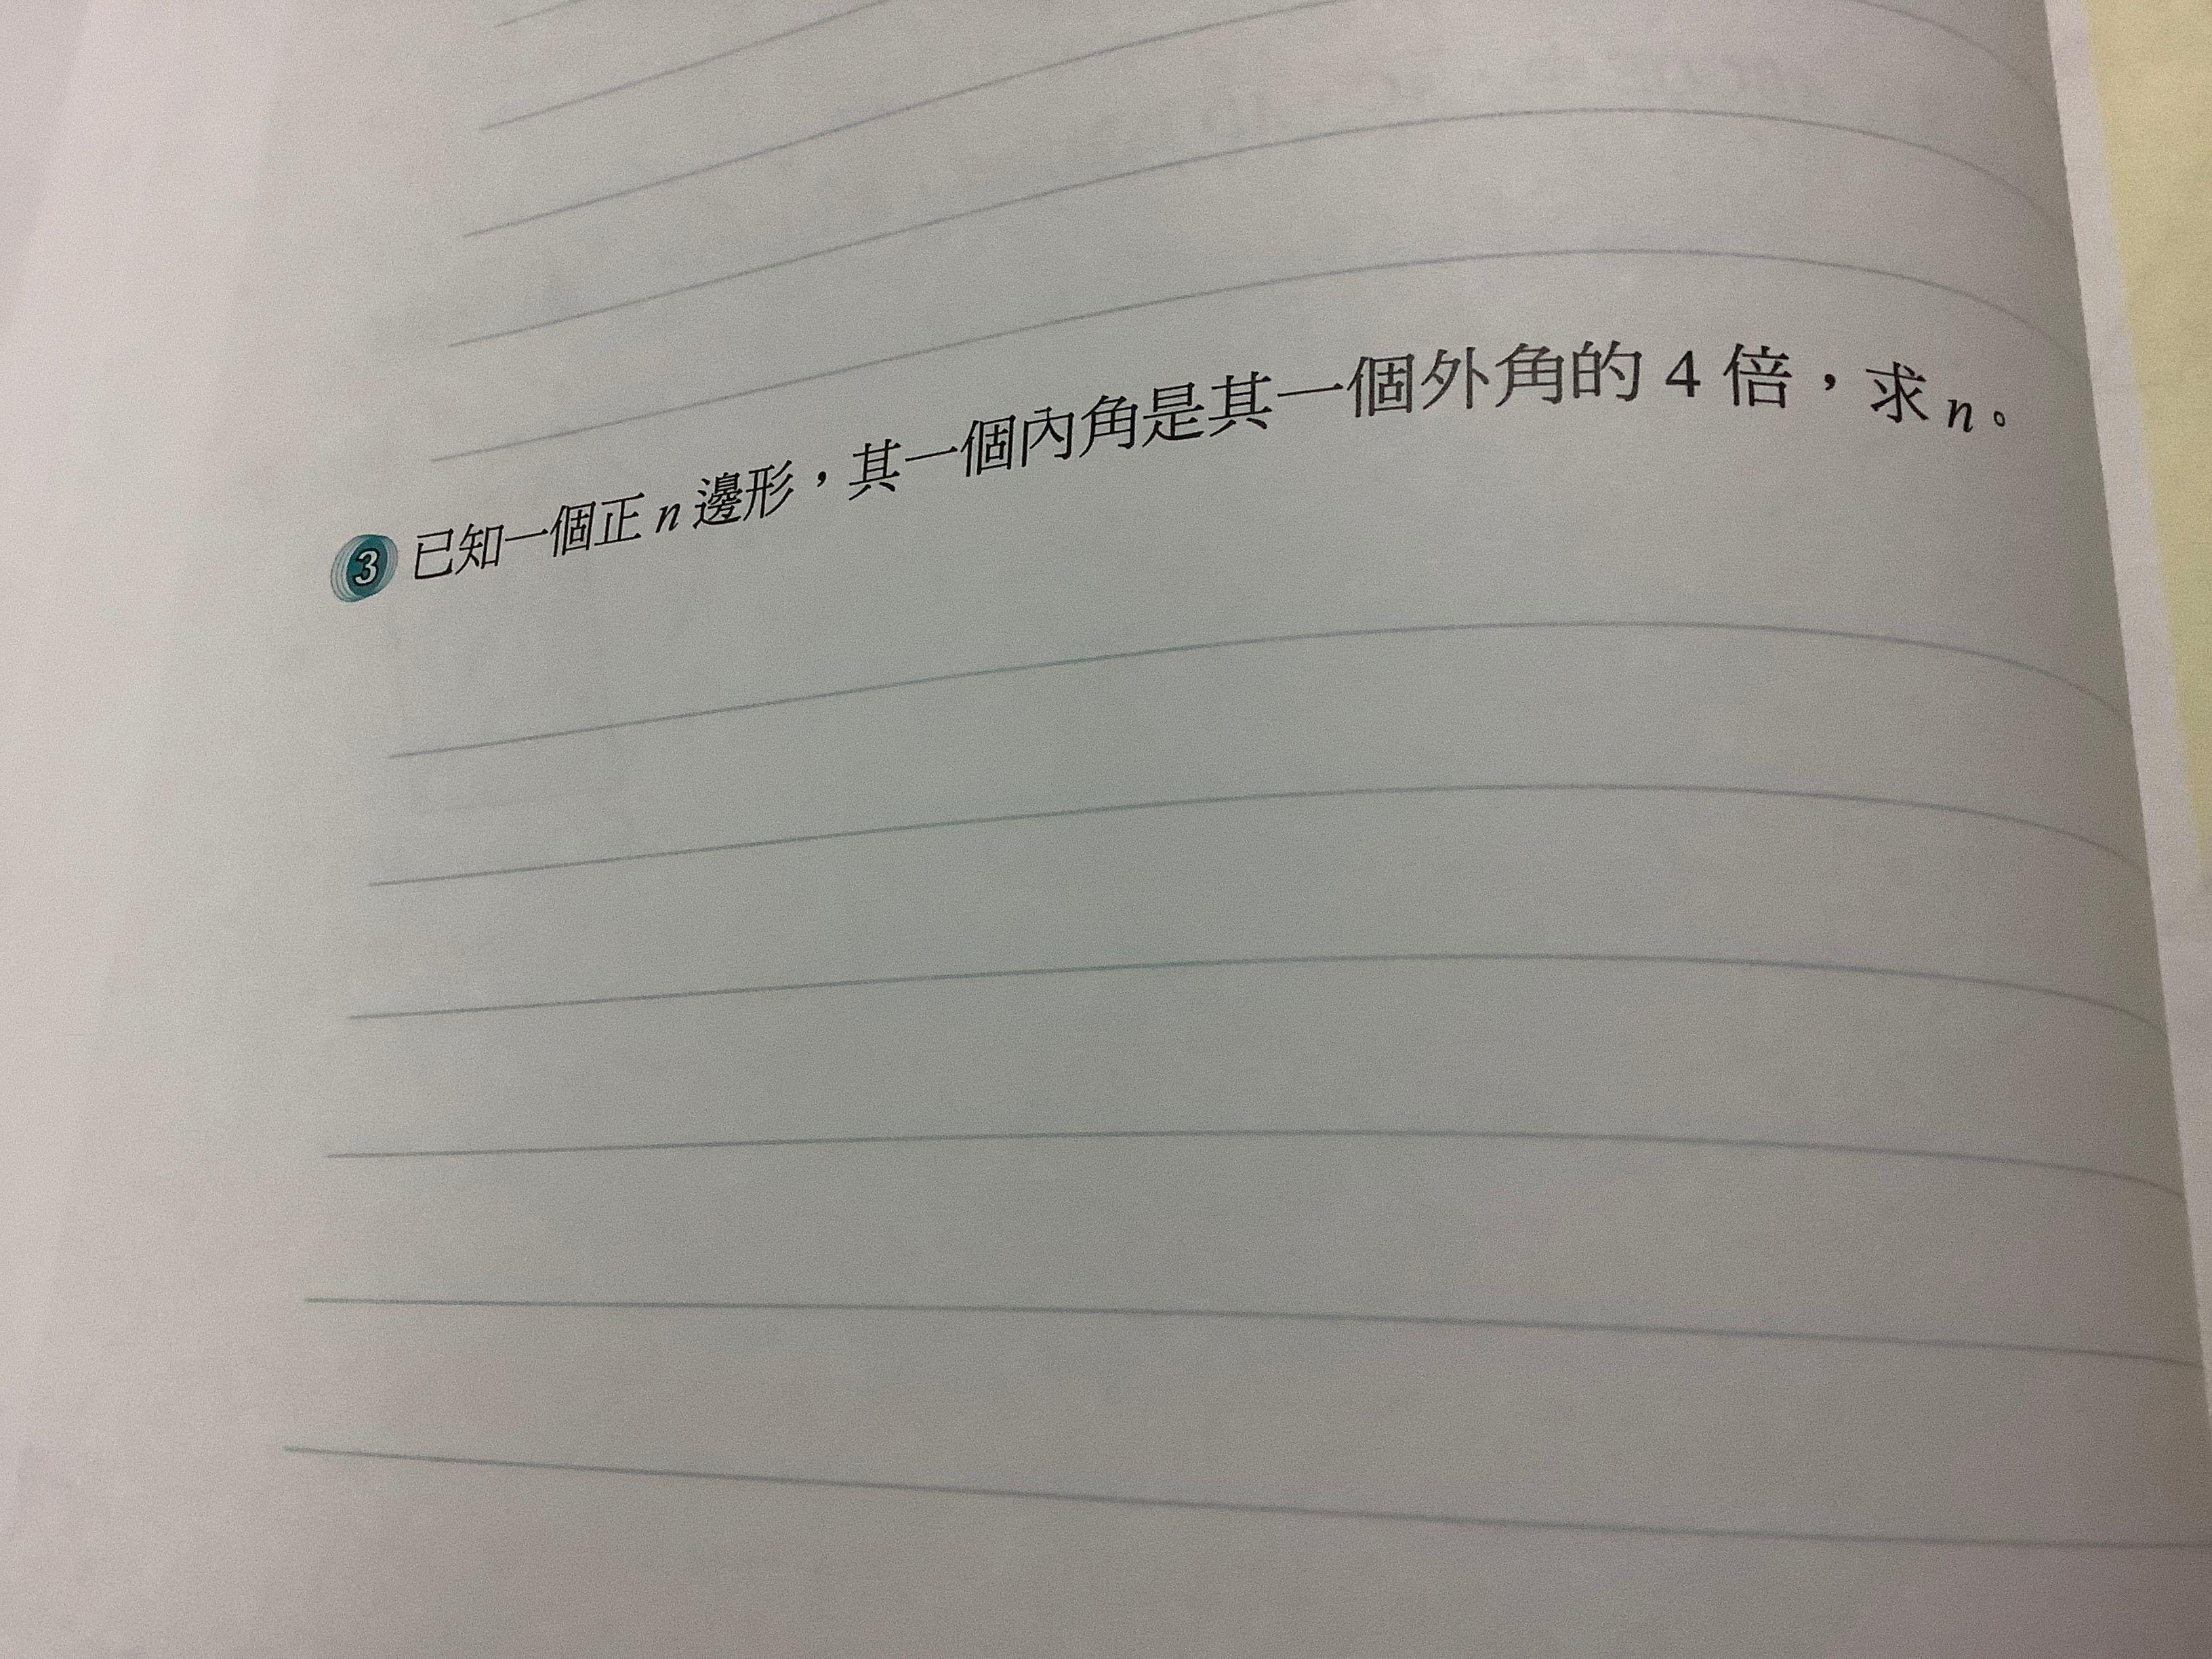 3 已知一個正 n 邊形，其一個內角是其一個外角的 4 倍，求 n。